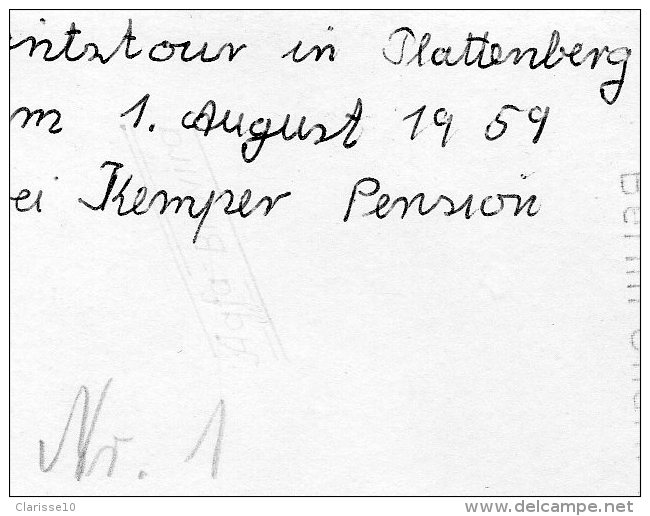 ntstour in Plattenberg
m 1. August 1959
ei Kemper Pension
Nr. 1
Agfa
Clarisse10
www.delcampe.net